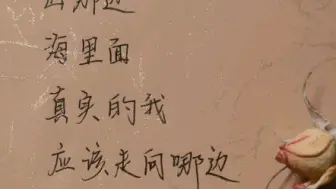 那边
海里面
真实的我
应该走向哪边